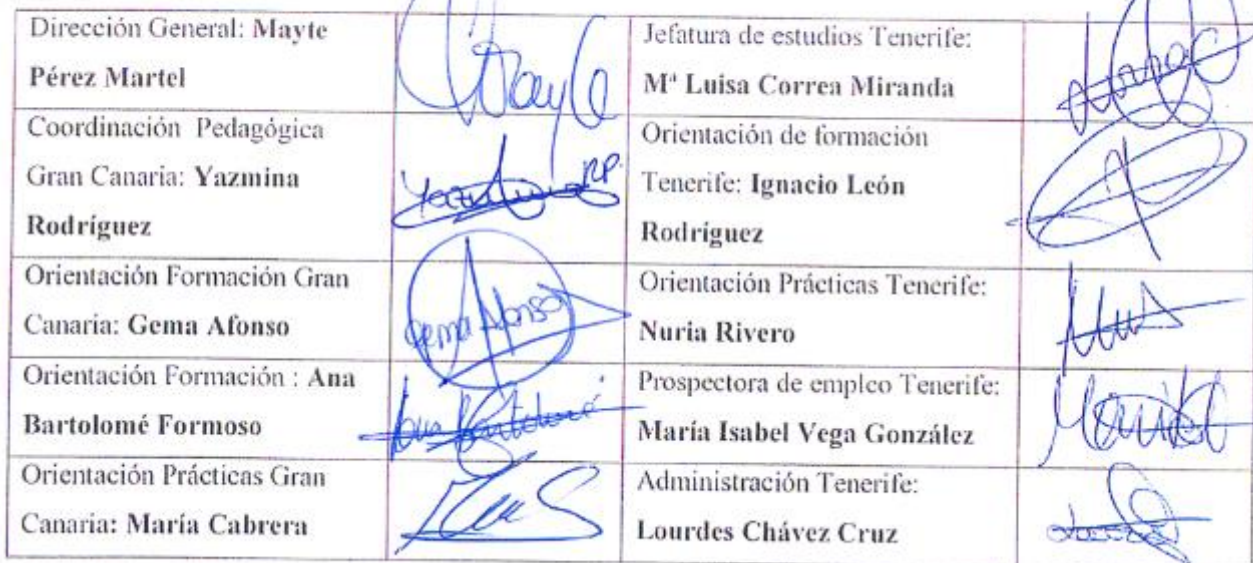 Dirección General: Mayte
Pérez Martel
Mayte
Jefatura de estudios Tenerife:
Mª Luisa Correa Miranda
Coordinación Pedagógica
Gran Canaria: Yazmina
Rodríguez
Yazmina RP.
Orientación de formación
Tenerife: Ignacio León
Rodriguez
Orientación Formación Gran
Canaria: Gema Afonso
Gema Afonso
Orientación Prácticas Tenerife:
Nuria Rivero
Orientación Formación : Ana
Bartolomé Formoso
Ana Bartolomé
Prospectora de empleo Tenerife:
María Isabel Vega González
Orientación Prácticas Gran
Canaria: María Cabrera
Administración Tenerife:
Lourdes Chávez Cruz